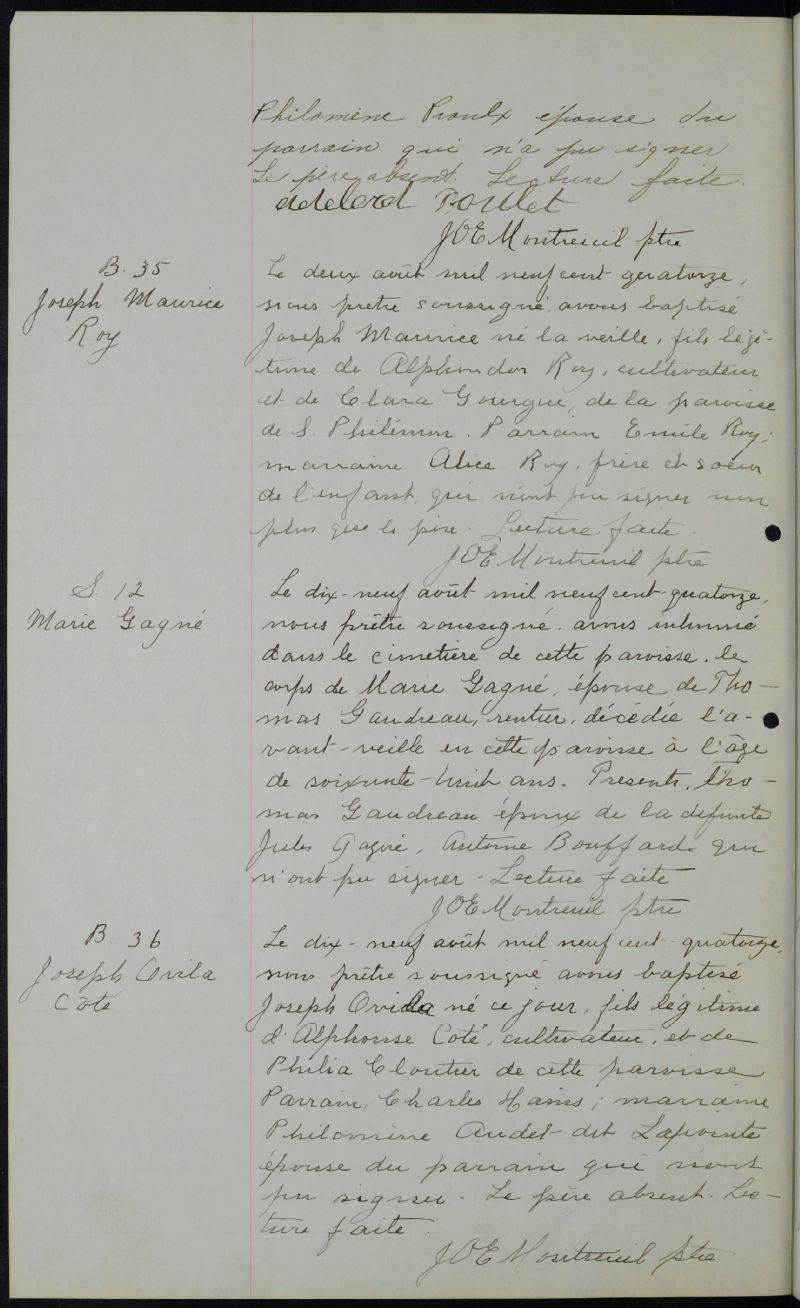 Philomène Proulx épouse du
parrain qui n'a pu signer
Le père absent. Lecture faite.
adelard Poulet
JOE Montreuil ptre
B. 35
Joseph Maurice
Roy
Le deux août mil neuf cent quatorze,
nous prêtre soussigné avons baptisé
Joseph Maurice né la veille, fils légi-
time de Alphondor Roy, cultivateur
et de Clara Gourgue, de la paroisse
de S. Philémon. Parrain Emile Roy;
marraine Alice Roy, frère et soeur
de l'enfant, qui n'ont pu signer non
plus que le père. Lecture faite.
JOE Montreuil ptre
S. 12
Marie Gagné
Le dix-neuf août mil neuf cent-quatorze,
nous prêtre soussigné avons inhumé
dans le cimetière de cette paroisse, le
corps de Marie Gagné, épouse de Tho-
mas Gaudreau, rentier, décédée l'a-
vant-veille en cette paroisse à l'âge
de soixante-huit ans. Presents, Tho-
mas Gaudreau époux de la defunte
Jules Gagné, Antoine Bouffard qui
n'ont pu signer - Lecture faite
JOE Montreuil ptre
B 36
Joseph Ovila
Côté
Le dix-neuf août mil neuf cent-quatorze,
nous prêtre soussigné avons baptisé
Joseph Ovila né ce jour, fils légitime
d'Alphonse Coté, cultivateur, et de
Philia Cloutier de cette paroisse
Parrain, Charles Hains; marraine
Philomène Audet dit Lapointe
épouse du parrain qui n'ont
pu signer. Le père absent. Lec-
ture faite.
JOE Montreuil ptre